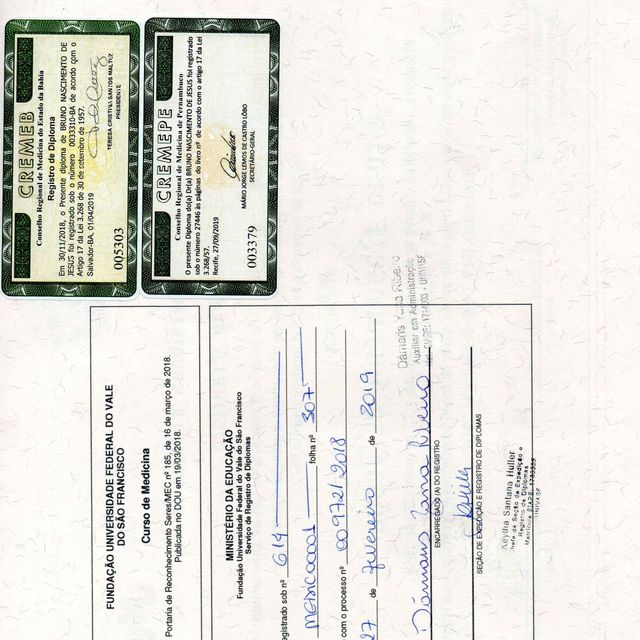 CREMEB
Conselho Regional de Medicina do Estado da Bahia
Registro de Diploma
Em 30/11/2018, o Presente diploma de BRUNO NASCIMENTO DE
JESUS foi registrado sob o número 0033310-BA de acordo com o
Artigo 17 da Lei 3.268 de 30 de setembro de 1957.
Salvador-BA, 01/04/2019
TERESA CRISTINA SANTOS MALTEZ
PRESIDENTE
005303
CREMEPE
Conselho Regional de Medicina de Pernambuco
O presente Diploma do(a) Dr(a) BRUNO NASCIMENTO DE JESUS foi registrado
sob o número 27446 às páginas do livro nº de acordo com o artigo 17 da Lei
3.268/57.
Recife, 27/09/2019
MÁRIO JORGE LEMOS DE CASTRO LÔBO
SECRETÁRIO-GERAL
003379
FUNDAÇÃO UNIVERSIDADE FEDERAL DO VALE
DO SÃO FRANCISCO
Curso de Medicina
Portaria de Reconhecimento Seres/MEC nº 185, de 16 de março de 2018.
Publicada no DOU em 19/03/2018.
MINISTÉRIO DA EDUCAÇÃO
Fundação Universidade Federal do Vale do São Francisco
Serviço de Registro de Diplomas
egistrado sob nº 614
folha nº 307
com o processo nº 00972/2018
27 de fevereiro de 2019
Dâmaris Yana Ribeiro
Auxiliar em Administração
Dâmaris Yana Ribeiro
ENCARREGADO (A) DO REGISTRO
SEÇÃO DE EXPEDIÇÃO E REGISTRO DE DIPLOMAS
Keylha Santana Huller
Chefe da Seção de Expedição e
Registro de Diplomas
UNIVASF